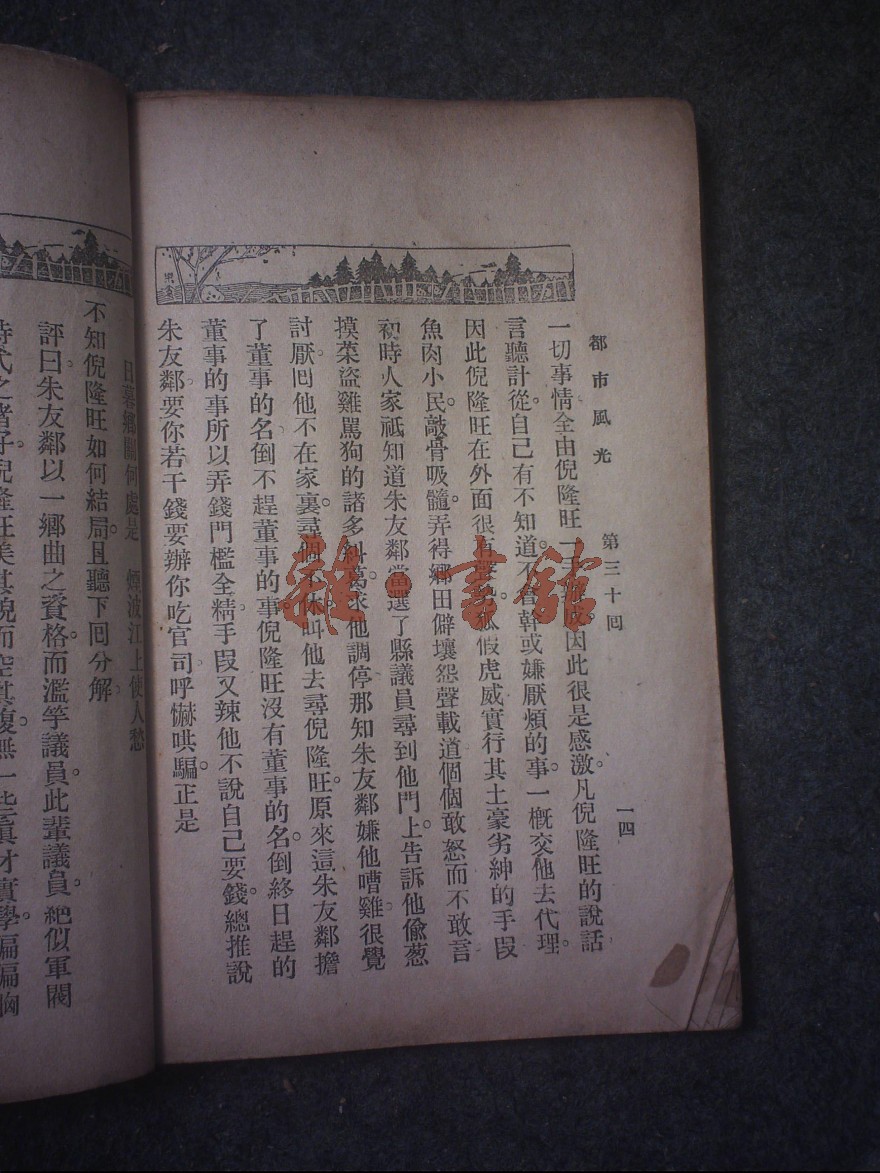 都市風光　第三十回　一四
一切事情全由倪隆旺一手　因此很是感激。凡倪隆旺的說話
言聽計從。自己有不知道。不會幹或嫌厭煩的事。一概交他去代理。
因此倪隆旺在外面很有聲勢。狐假虎威實行其土豪劣紳的手段
魚肉小民。敲骨吸髓。弄得鄉田僻壤怨聲載道個個敢怒而不敢言
初時人家祇知道朱友鄰當選了縣議員尋到他門上。告訴他偸葱
摸菜盜雞罵狗的諸多糾葛。求他調停那知朱友鄰嫌他嘈雞。很覺
討厭。囘他不在家裏。尋個不休叫他去尋倪隆旺。原來這朱友鄰擔
了董事的名倒不趕董事的事。倪隆旺沒有董事的名。倒終日趕的
董事的事所以弄錢門檻全精。手段又辣他不說自己要錢。總推說
朱友鄰。要你若干錢要辦你吃官司。呼嚇哄騙正是
日暮鄉關何處是　煙波江上使人愁
不知倪隆旺如何結局。且聽下囘分解。
評曰朱友鄰以一鄉曲之資格。而濫竽議員。此輩議員。絕似軍閥
時代之　倪隆旺美其貌而空其腹。無一些眞才實學。偏偏胸
雜·書館